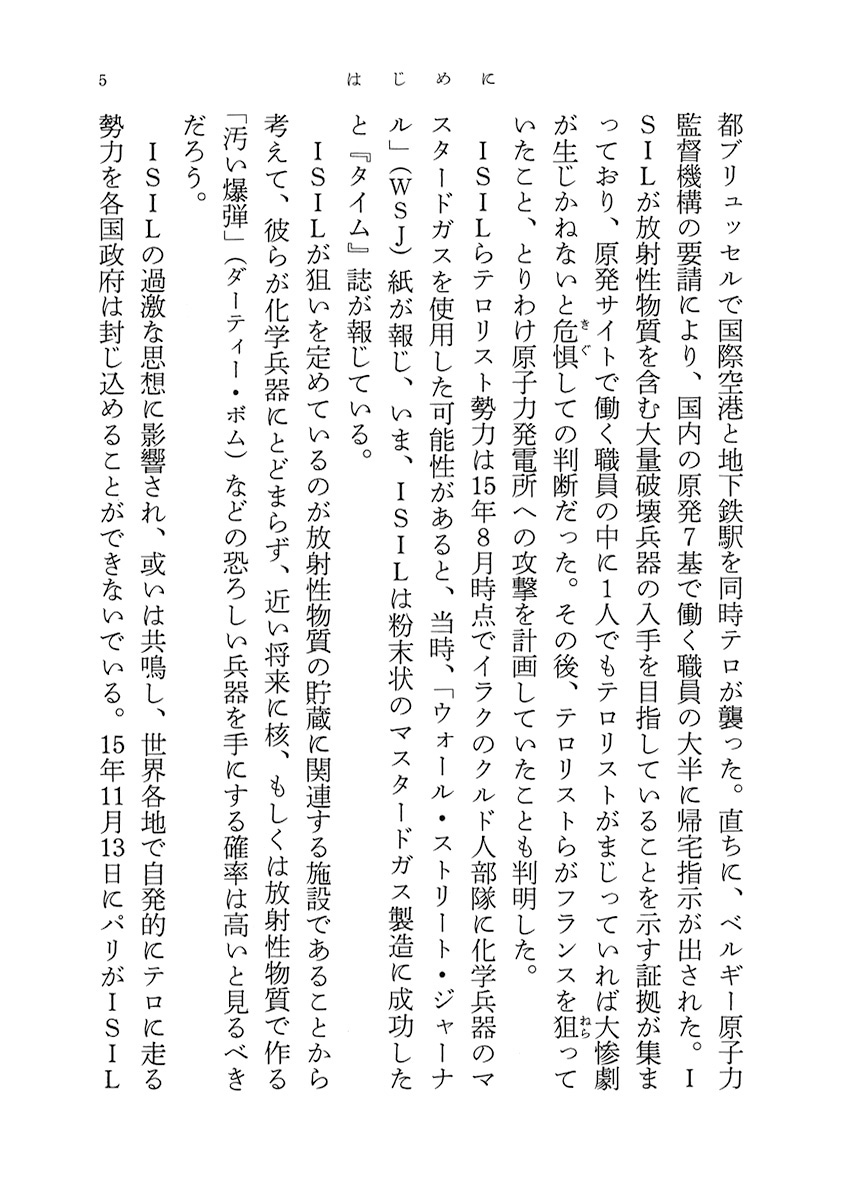 5
はじめに
都ブリュッセルで国際空港と地下鉄駅を同時テロが襲った。直ちに、ベルギー原子力
監督機構の要請により、国内の原発7基で働く職員の大半に帰宅指示が出された。I
SILが放射性物質を含む大量破壊兵器の入手を目指していることを示す証拠が集ま
っており、原発サイトで働く職員の中に1人でもテロリストがまじっていれば大惨劇
が生じかねないと危惧しての判断だった。その後、テロリストらがフランスを狙って
きぐ
ねら
いたこと、とりわけ原子力発電所への攻撃を計画していたことも判明した。
ISILらテロリスト勢力は15年8月時点でイラクのクルド人部隊に化学兵器のマ
スタードガスを使用した可能性があると、当時、「ウォール・ストリート・ジャーナ
ル」(WSJ)紙が報じ、いま、ISILは粉末状のマスタードガス製造に成功した
と『タイム』誌が報じている。
ISILが狙いを定めているのが放射性物質の貯蔵に関連する施設であることから
考えて、彼らが化学兵器にとどまらず、近い将来に核、もしくは放射性物質で作る
「汚い爆弾」(ダーティー・ボム)などの恐ろしい兵器を手にする確率は高いと見るべき
だろう。
ISILの過激な思想に影響され、或いは共鳴し、世界各地で自発的にテロに走る
勢力を各国政府は封じ込めることができないでいる。15年11月13日にパリがISIL